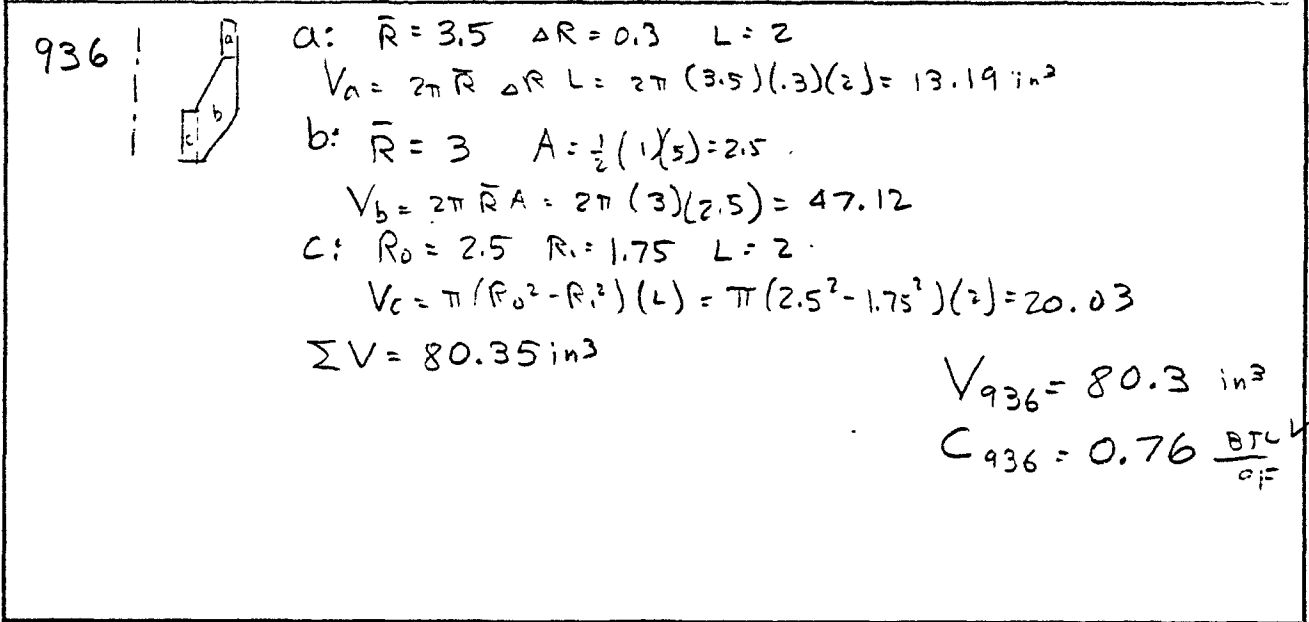 936
a: R̄ = 3.5 ΔR = 0.3 L = 2
Va = 2π R̄ ΔR L = 2π (3.5)(.3)(2) = 13.19 in³
b: R̄ = 3 A = ½ (1)(5) = 2.5
Vb = 2π R̄ A = 2π (3)(2.5) = 47.12
C: Ro = 2.5 Ri = 1.75 L = 2
Vc = π (Ro² - Ri²)(L) = π (2.5² - 1.75²)(2) = 20.03
ΣV = 80.35 in³
V936 = 80.3 in³
C936 = 0.76 BTU/°F
a
b
c